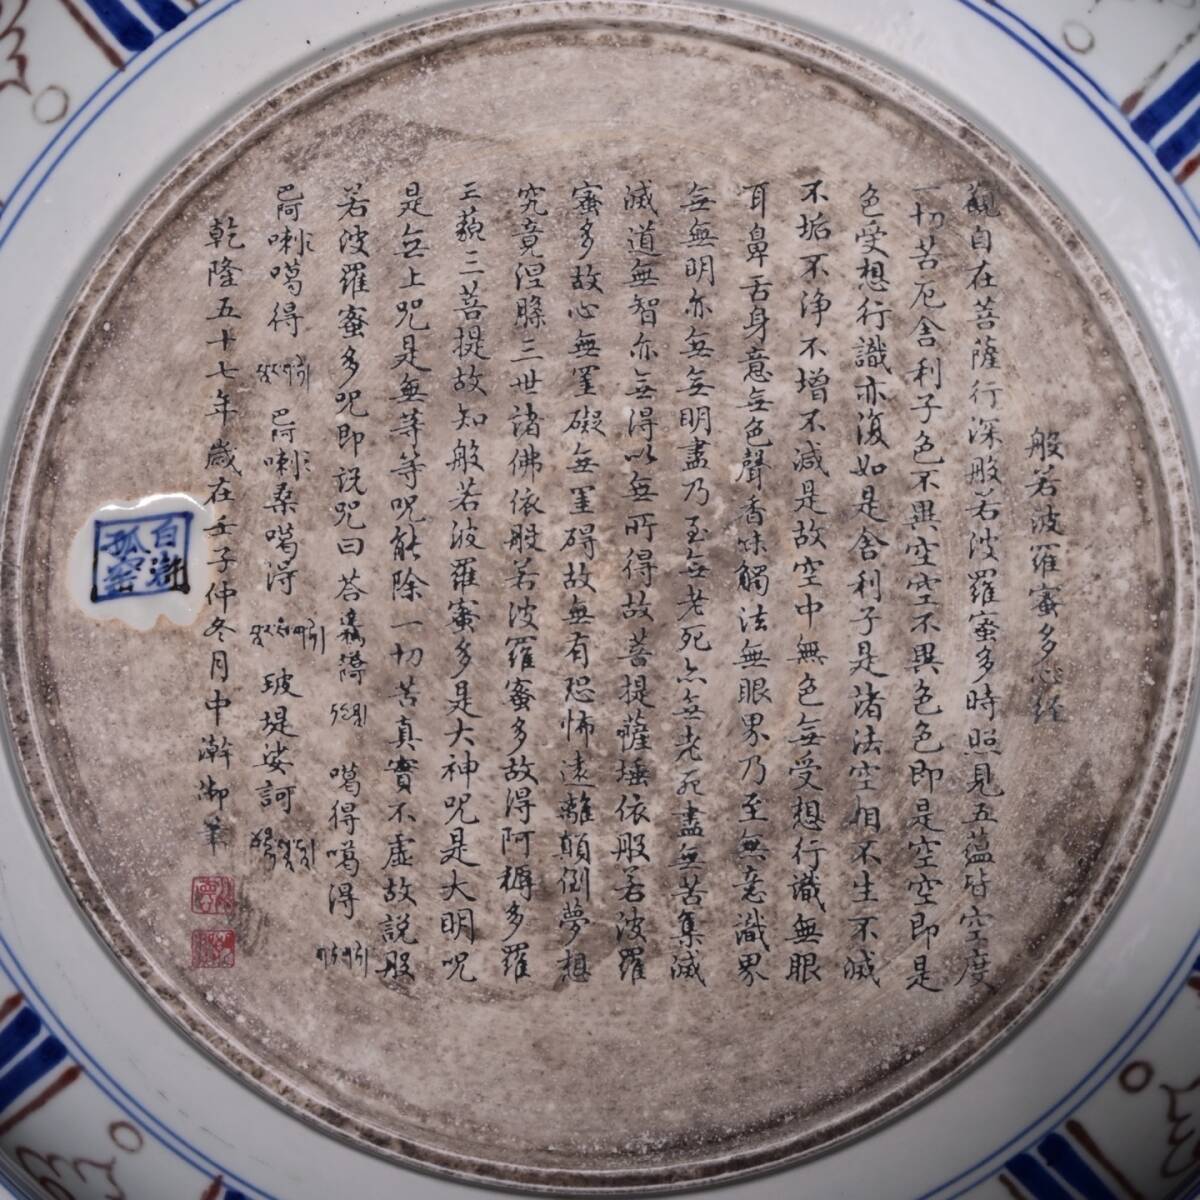 般若波羅蜜多心経
觀自在菩薩行深般若波羅蜜多時照見五蘊皆空度
一切苦厄舍利子色不異空空不異色色即是空空即是
色受想行識亦復如是舍利子是諸法空相不生不滅
不垢不浄不增不減是故空中無色無受想行識無眼
耳鼻舌身意無色聲香味觸法無眼界乃至無意識界
無無明亦無無明盡乃至無老死亦無老死盡無苦集滅
滅道無智亦無得以無所得故菩提薩埵依般若波羅
蜜多故心無罣礙無罣碍故無有恐怖遠離顛倒夢想
究竟涅槃三世諸佛依般若波羅蜜多故得阿耨多羅
三藐三菩提故知般若波羅蜜多是大神咒是大明咒
是無上咒是無等等咒能除一切苦真實不虛故説般
若波羅蜜多咒即説咒曰荅 噶得噶得
巴阿喇噶得 巴阿喇桑噶得 玻堤娑訶
乾隆五十七年歲在壬子仲冬月中澣御筆
白
孤